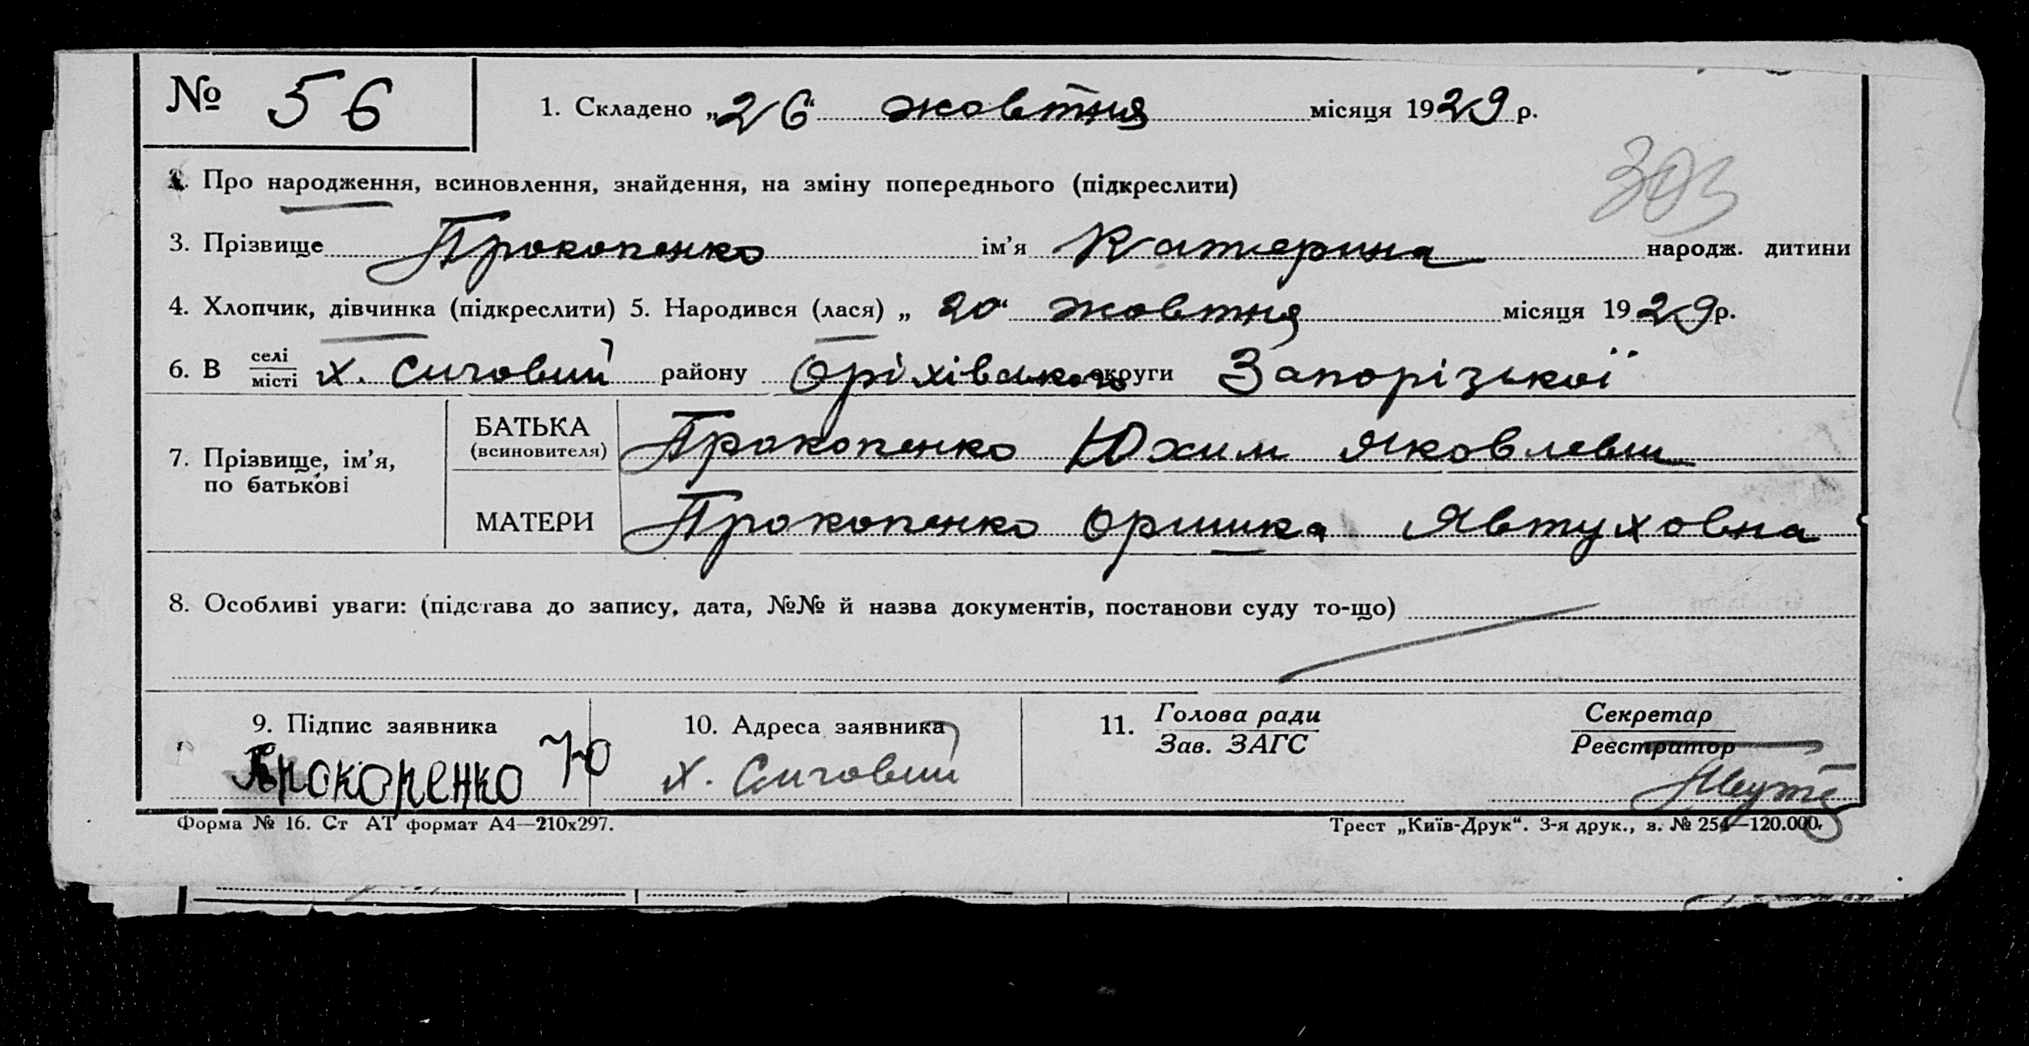 № 56 1. Складено „26“ жовтня місяця 1929 р.
303
2. Про народження, всиновлення, знайдення, на зміну попереднього (підкреслити)
3. Прізвище Прокопенко ім’я Катерина народж. дитини
4. Хлопчик, дівчинка (підкреслити) 5. Народився (лася) „20“ жовтня місяця 1929 р.
6. В селі/місті х. Сичовий району Оріхівського округи Запорізької
7. Прізвище, ім’я, по батькові
БАТЬКА (всиновителя) Прокопенко Юхим Яковлевич
МАТЕРИ Прокопенко Оришка Явтуховна
8. Особливі уваги: (підстава до запису, дата, №№ й назва документів, постанови суду то-що)
9. Підпис заявника 10. Адреса заявника 11. Голова ради Секретар
Зав. ЗАГС Реєстратор
Прокопенко Ю х. Сичовий
Форма № 16. Ст АТ формат А4—210х297. Трест „Київ-Друк“. 3-я друк., з. № 254—120.000.